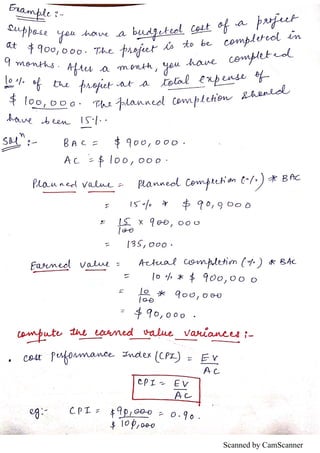 Example :-
Suppose you have a budgeted cost of a project
at $900,000. The project is to be completed in
9 months. After a month, you have completed
10% of the project at a total expense of
$100,000. The planned completion should
have been 15%.
Solⁿ :- BAC = $900,000.
AC = $100,000.
Planned Value = Planned Completion (%) * BAC
= 15% * $90,9000
= 15/100 × 900,000
= 135,000.
Earned Value = Actual Completion (%) * BAC
= 10% * $900,000
= 10/100 * 900,000
= $90,000.
Compute the earned value variances :-
• Cost Performance Index (CPI) = EV/AC
CPI = EV/AC
eg:- CPI = $90,000/$100,000 = 0.90.
Scanned by CamScanner